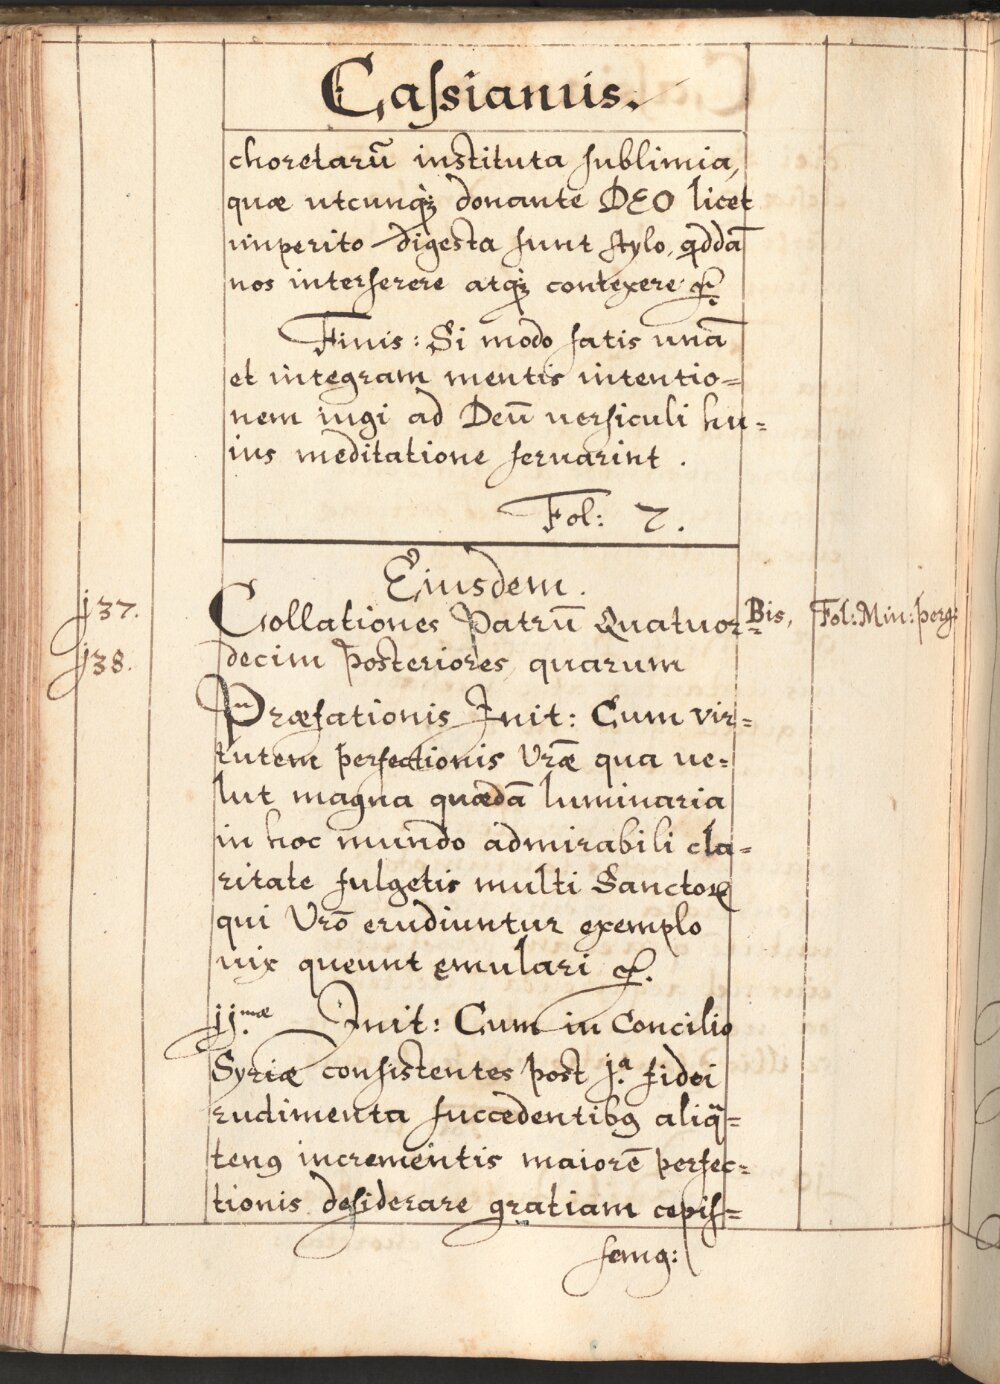 Caſsianus.
choretarū instituta ſublimia,
quæ utcunq́ꝫ donante DEO licet
imperito digesta ſunt ſtylo, qddā
nos interſerere atq́ꝫ contexere ꝛc̃.
Finis: Si modo ſatis unā
et integram mentis intentio=
nem iugi ad Deū uerſiculi hu=
ius meditatione ſeruarint .
Fol: 7.
Eiusdem.
137. Collationes Patrū Quatuor= Bis, Fol: Min: perg:
138. decim posteriores, quarum
Præfationis Init: Cum vir=
tutem perfectionis Vr̄æ qua ue=
lut magna quædā luminaria
in hoc mundo admirabili cla=
ritate fulgetis multi Sanctoꝝ
qui Vrō erudiuntur exemplo
uix queunt ęmulari ꝛc.
IJ.mæ Init: Cum in Concilio
Syriæ conſistentes post j.a fidei
rudimenta ſuccedentibꝯ aliq̄=
tenꝯ incrementis maiorē perfec=
tionis deſiderare gratiam cepiſ=
ſemꝯ: